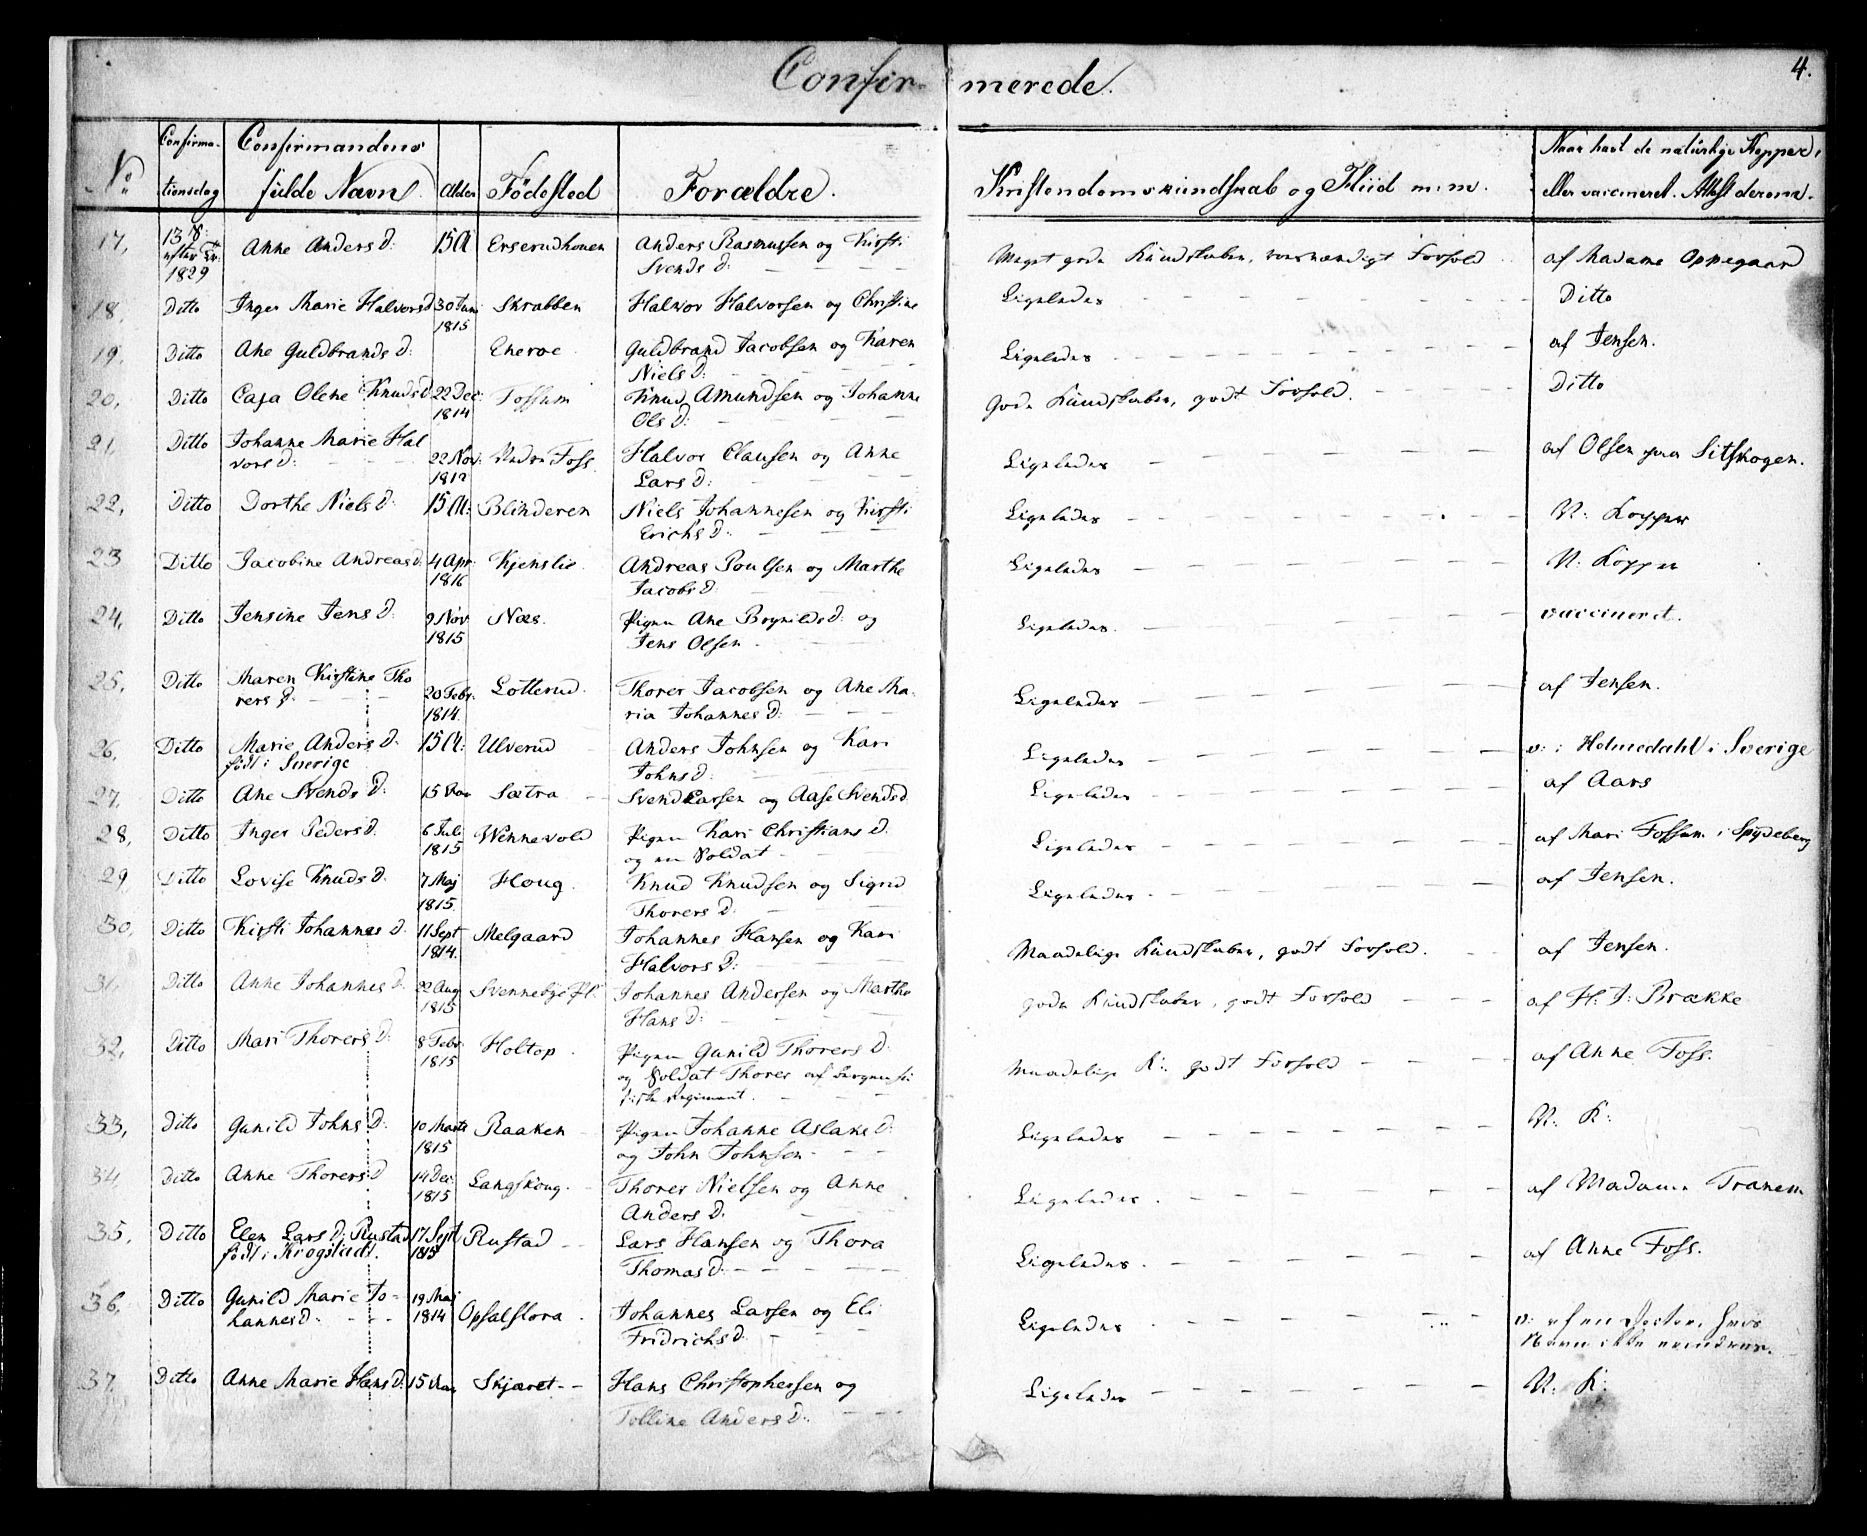 Confir- merede.
4.
No
Confirma-
tionsdag
Confirmandens
fulde Navn
Alder
Födested
Forældre.
Kristendomskundskab og Fliid m: m.
Naar havt de natürlige Kopper,
eller vaccineret. Attest derom.
17, 1829 Anne Andersd: 15 A Erserudhouen Anders Rasmussen og Kirsti
Svends d: Meget gode Kundskaber, Forhold af Madame Oppegaard
18, Ditto Inger Marie Halvorsd 30 Juni
1815 Skrabben Halvor Halvorsen og Christine Ligeledes Ditto
19, Ditto Ane Guldbrandsd: Eneroe Guldbrand Jacobsen og Karen
Niels d: Ligeledes af Jensen.
20, Ditto Caja Olene Knudsd 22 Dec:
1814 Fossum Knud Amundsen og Johanne
Ols d: Gode Kundskaber, godt Forhold. Ditto
21, Ditto Johanne Marie Hal
vors d: 22 Nov: Nedre Foss. Halvor Clausen og Anne
Lars d: Ligeledes af Olsen paa Sitskogen.
22, Ditto Dorthe Niels d: 15 A: Blinderen Niels Johannesen og Kirsti
Erichs d: Ligeledes N: Kopper
23 Ditto Jacobine Andreasd: 4 Apr:
1816 Kjenslie Andreas Poulsen og Marthe
Jacobs d: Ligeledes N: Kopper
24, Ditto Jensine Jens d: 9 Nov
1815 Næs. Pigen Ane Brynilds d: og
Jens Olsen Ligeledes. vaccineret.
25, Ditto Maren Kirstine Tho
rers d: 20 Febr:
1814. Lotterud. Thorer Jacobsen og Ane Ma-
ria Johannes d: Ligeledes af Jensen.
26, Ditto Marie Anders d:
født i Sverige 15 A: Ulverud Anders Johnsen og Kari
Johns d: Ligeledes v: i Holmedahl i Sverige
27, Ditto Ane Svends d: 15 Aar Sætra Svend Larsen og Aase Svendsd. Ligeledes af Aars
28, Ditto Inger Peders d. 6 Juli
1815 Wennevold Pigen Kari Christians d.
og en Soldat Ligeledes af Mari Fossum i Spydeberg
29 Ditto Lovise Knuds d. 7 Maj
1815. Houg. Knud Knudsen og Sigrid
Thorers d: Ligeledes af Jensen.
30, Ditto Kirsti Johannes d: 11 Sept
1814. Melgaard Johannes Hansen og Kari
Halvors d: Maadelige Kundskaber, godt Forhold. af Jensen.
31, Ditto Anne Johannes d: 22 Aug
1815 Svennebye Pl: Johannes Andersen og Marthe
Hans d: gode Kundskaber, godt Forhold af H: J: Brække
32, Ditto Mari Thorers d: 8 Febr:
1815 Holtop. Pigen Gunild Thorers d:
og Soldat Thorer af
Regiment. Maadelige K: godt Forhold af Anne Foss.
33, Ditto Gunild Johns d: 10 Marts
1815 Raaken Pigen Johanne Aslaks d:
og John Johnsen Ligeledes N: K:
34 Ditto Anne Thorers d 14 Dec:
1815 Langskoug. Thorer Nielsen og Anne
Anders d. Ligeledes af Madame Tranem
35, Ditto Elen Lars d: Rustad
født i Krogstad. 17 Sept
1815 Rustad Lars Hansen og Thora
Thomas d: Ligeledes. af Anne Foss.
36, Ditto Gunild Marie Jo-
hannesd: 19 Maj
1814 Opsalflora. Johannes Larsen og Eli
Fridrichs d: Ligeledes v: af en Doctor, hvis
Navn ikke erindres.
37, Ditto Anne Marie Hans d: 15 Aar Skjæret Hans Christophersen og
Tolline Anders d: Ligeledes N: K: